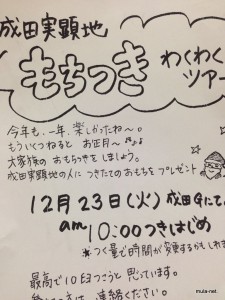 成田実顕地
もちつき わくわく
ツアー
今年も、一年、楽しかったね〜。
もういくつねると お正月〜
大家族の おもちつきをしましょう。
成田実顕地の人に つきたてのおもちを プレゼント
12月23日(火) 成田Gにて
am 10:00つきはじめ
*つく量で時間が変更するかもしれま
最高で10臼つこうと 思っています。
連絡ください。
mula-net.